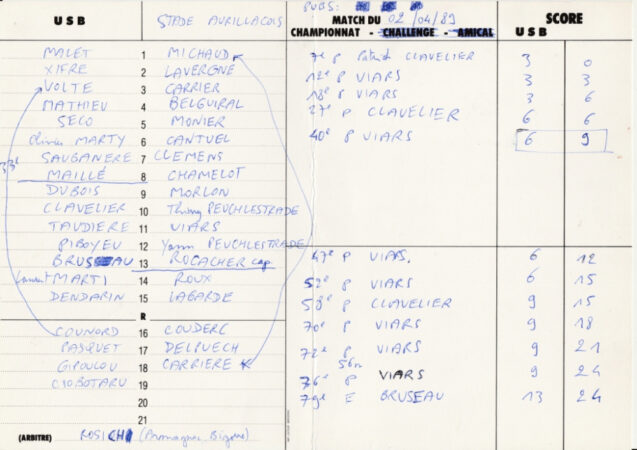 PUBS:
USB STADE AURILLACOIS MATCH DU 02/04/89 SCORE
CHAMPIONNAT - CHALLENGE - AMICAL USB
MALET 1 MICHAUD 7e P Patrick CLAVELIER 3 0
XIFRE 2 LAVERGNE 12e P VIARS 3 3
VOLTE 3 CARRIER 18e P VIARS 3 6
MATHIEU 4 BELGUIRAL 27e P CLAVELIER 6 6
SECO 5 MONIER 40e P VIARS 6 9
Olivier MARTY 6 CANTUEL
33e SAUBANERE 7 CLEMENS
MAILLÉ 8 CHAMELOT
DUBOIS 9 MORLON
CLAVELIER 10 Thierry PEUCHLESTRADE
TAUDIERE 11 VIARS
PIBOYEU 12 Yann PEUCHLESTRADE
BRUSEAU 13 ROCACHER cap 47e P VIARS. 6 12
Laurent MARTI 14 ROUX 52e P VIARS 6 15
DENDARIN 15 LAGARDE 58e P CLAVELIER 9 15
R
COUNORD 16 COUDERC 70e P VIARS 9 18
PASQUET 17 DELPUECH 72e P VIARS 9 21
GIPOULOU 18 CARRIERE 76e P 56m VIARS 9 24
CIOBOTARU 19 79e E BRUSEAU 13 24
20
21
(ARBITRE) ROSICH (Armagnac Bigorre)